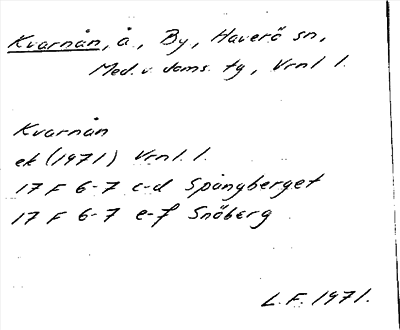 Kvarnån, å, By, Haverö sn,
Med. v. doms. tg, Vrnl l.
Kvarnån
ek (1971) Vrnl. l.
17 F 6-7 c-d Spångberget
17 F 6-7 e-f Snöberg
L.F. 1971.